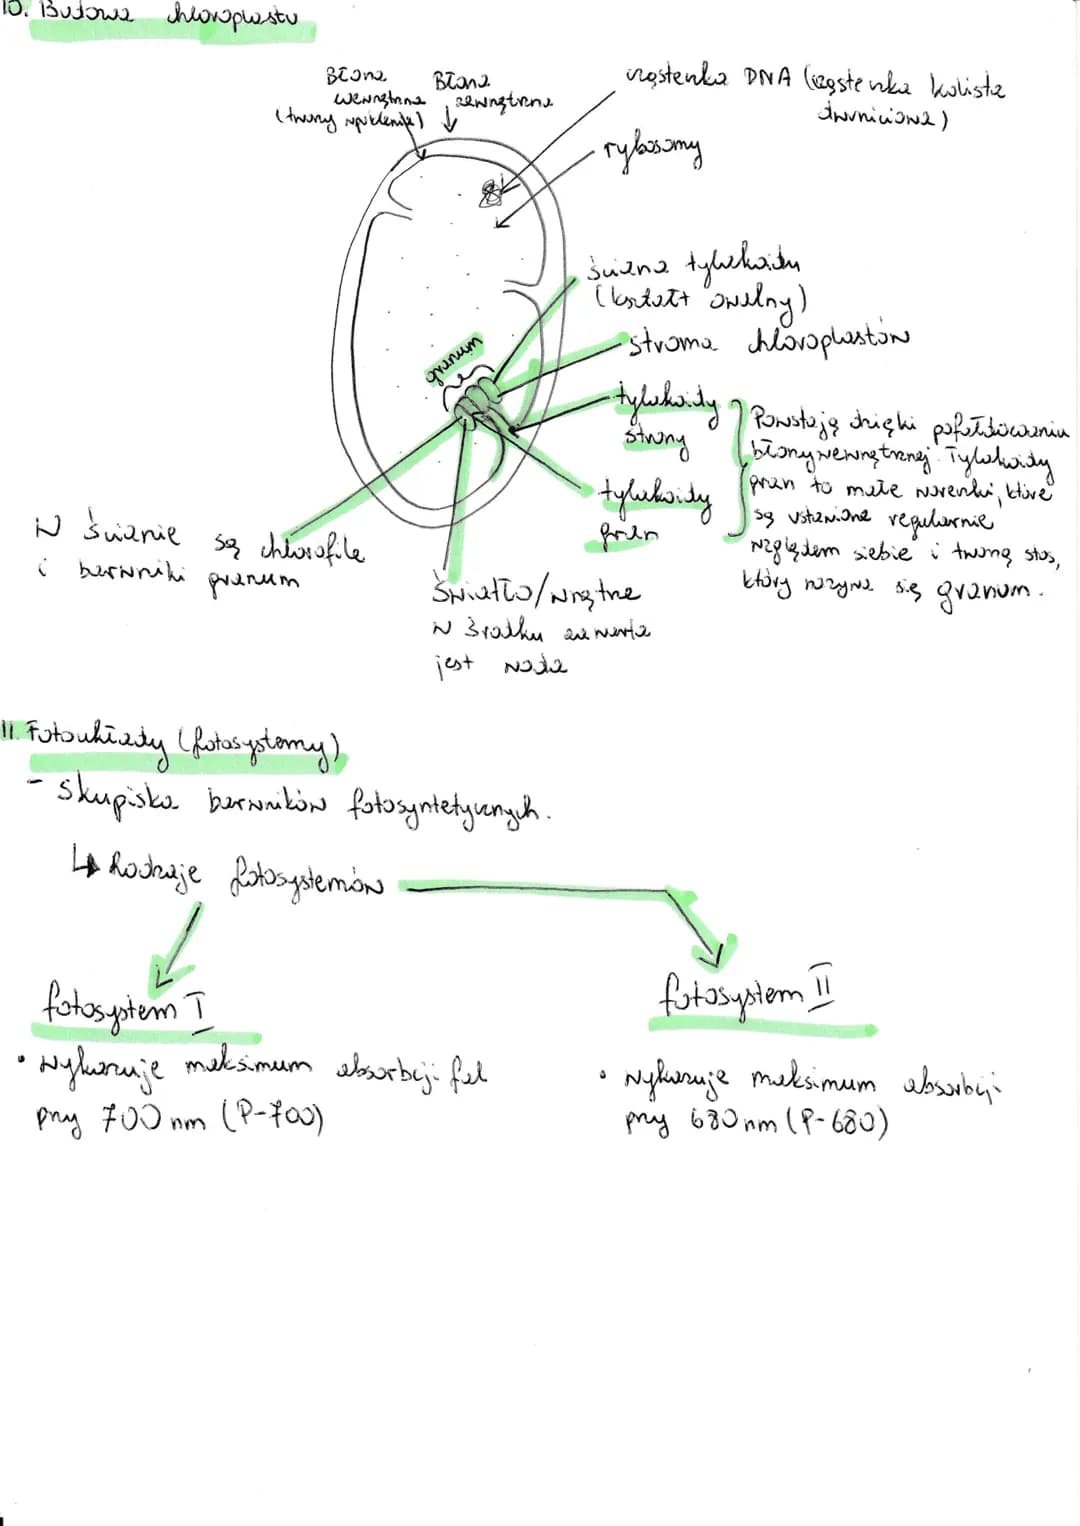 10. Budowa chloroplastu
Błona
wewnętrzna
(tworzy wpuklenia)
Błona
zewnętrzna
cząsteczka DNA (cząsteczka kolista
dwuniciowa)
rybosomy
ściana tylakoidu
(kształt owalny)
stroma chloroplastów
granum
tylakoidy
stromy
tylakoidy
gran
Powstają dzięki pofałdowaniu
błony wewnętrznej. Tylakoidy
gran to małe woreczki, które
są ustawione regularnie
względem siebie i tworzą stos,
który nazywa się granum.
W ścianie są chlorofile
i barwniki granum
Światło/wnętrze
w środku zawarta
jest woda
11. Fotoukłady (fotosystemy)
- skupiska barwników fotosyntetycznych.
↳ Rodzaje fotosystemów
fotosystem I
• wykazuje maksimum absorbcji fal
przy 700 nm (P-700)
fotosystem II
• wykazuje maksimum absorbcji
przy 680 nm (P-680)